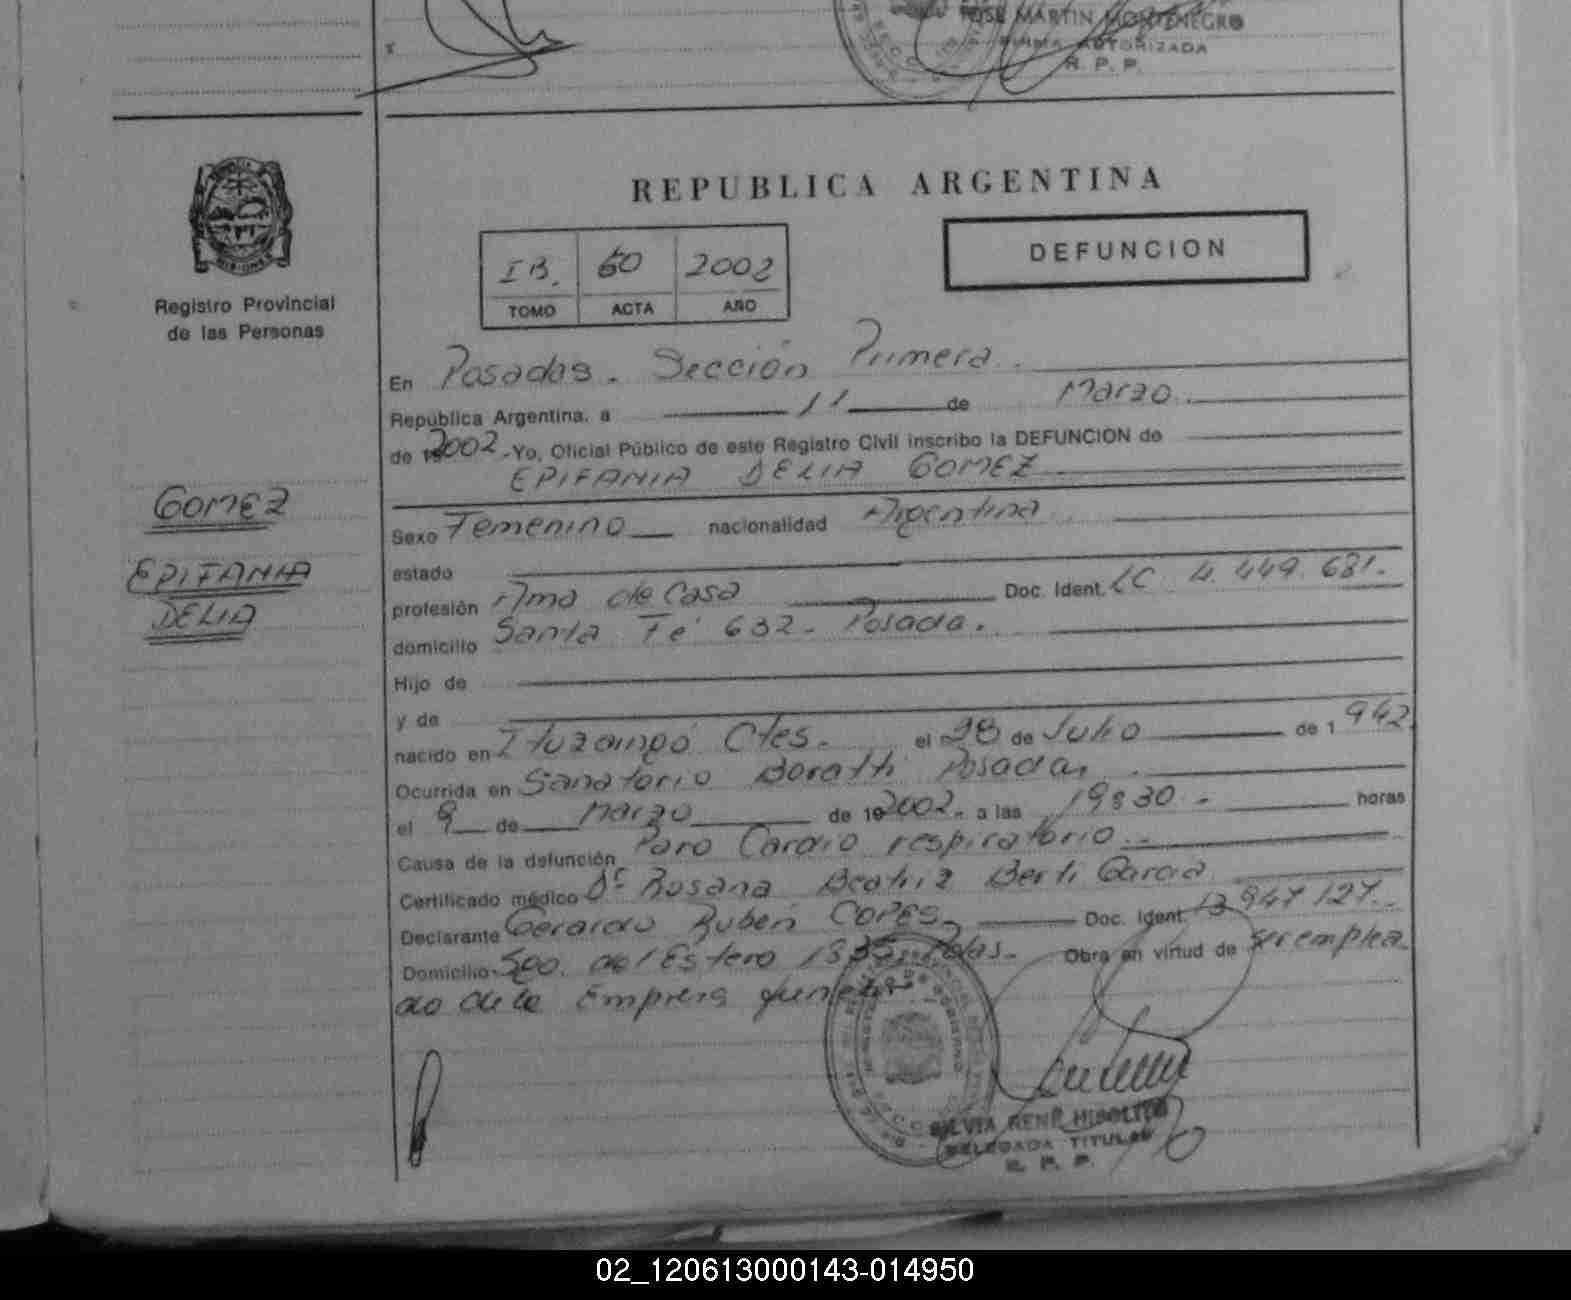 JOSE MARTIN MONTENEGRO
FIRMA AUTORIZADA
R. P. P.
REPUBLICA ARGENTINA
IB. 60 2002
TOMO ACTA AÑO
DEFUNCION
Registro Provincial
de las Personas
GOMEZ
EPIFANIA
DELIA
En Posadas. Sección Primera.
República Argentina, a 11 de Marzo.
de 19 2002.-Yo, Oficial Público de este Registro Civil inscribo la DEFUNCION de
EPIFANIA DELIA GOMEZ
Sexo Femenino nacionalidad Argentina
estado
profesión Ama de Casa Doc. Ident. LC 4.449.681.
domicilio Santa Fé 632 - Posadas.
Hijo de
y de
nacido en Ituzaingó Ctes. el 28 de Julio de 1 942
Ocurrida en Sanatorio Boratti Posadas
el 9 de Marzo de 19 2002. a las 19:30 - horas
Causa de la defunción Paro Cardio respiratorio.-
Certificado médico Dr. Rosana Beatriz Berti Garcia
Declarante Gerardo Ruben COPES. Doc. Ident. 13 947 127.
Domicilio Sgo. del Estero 1835 Pdas. Obra en virtud de ser emplea
do de la Empresa
SILVIA RENE HIPOLITO
DELEGADA TITULAR
R. P. P.
02_120613000143-014950